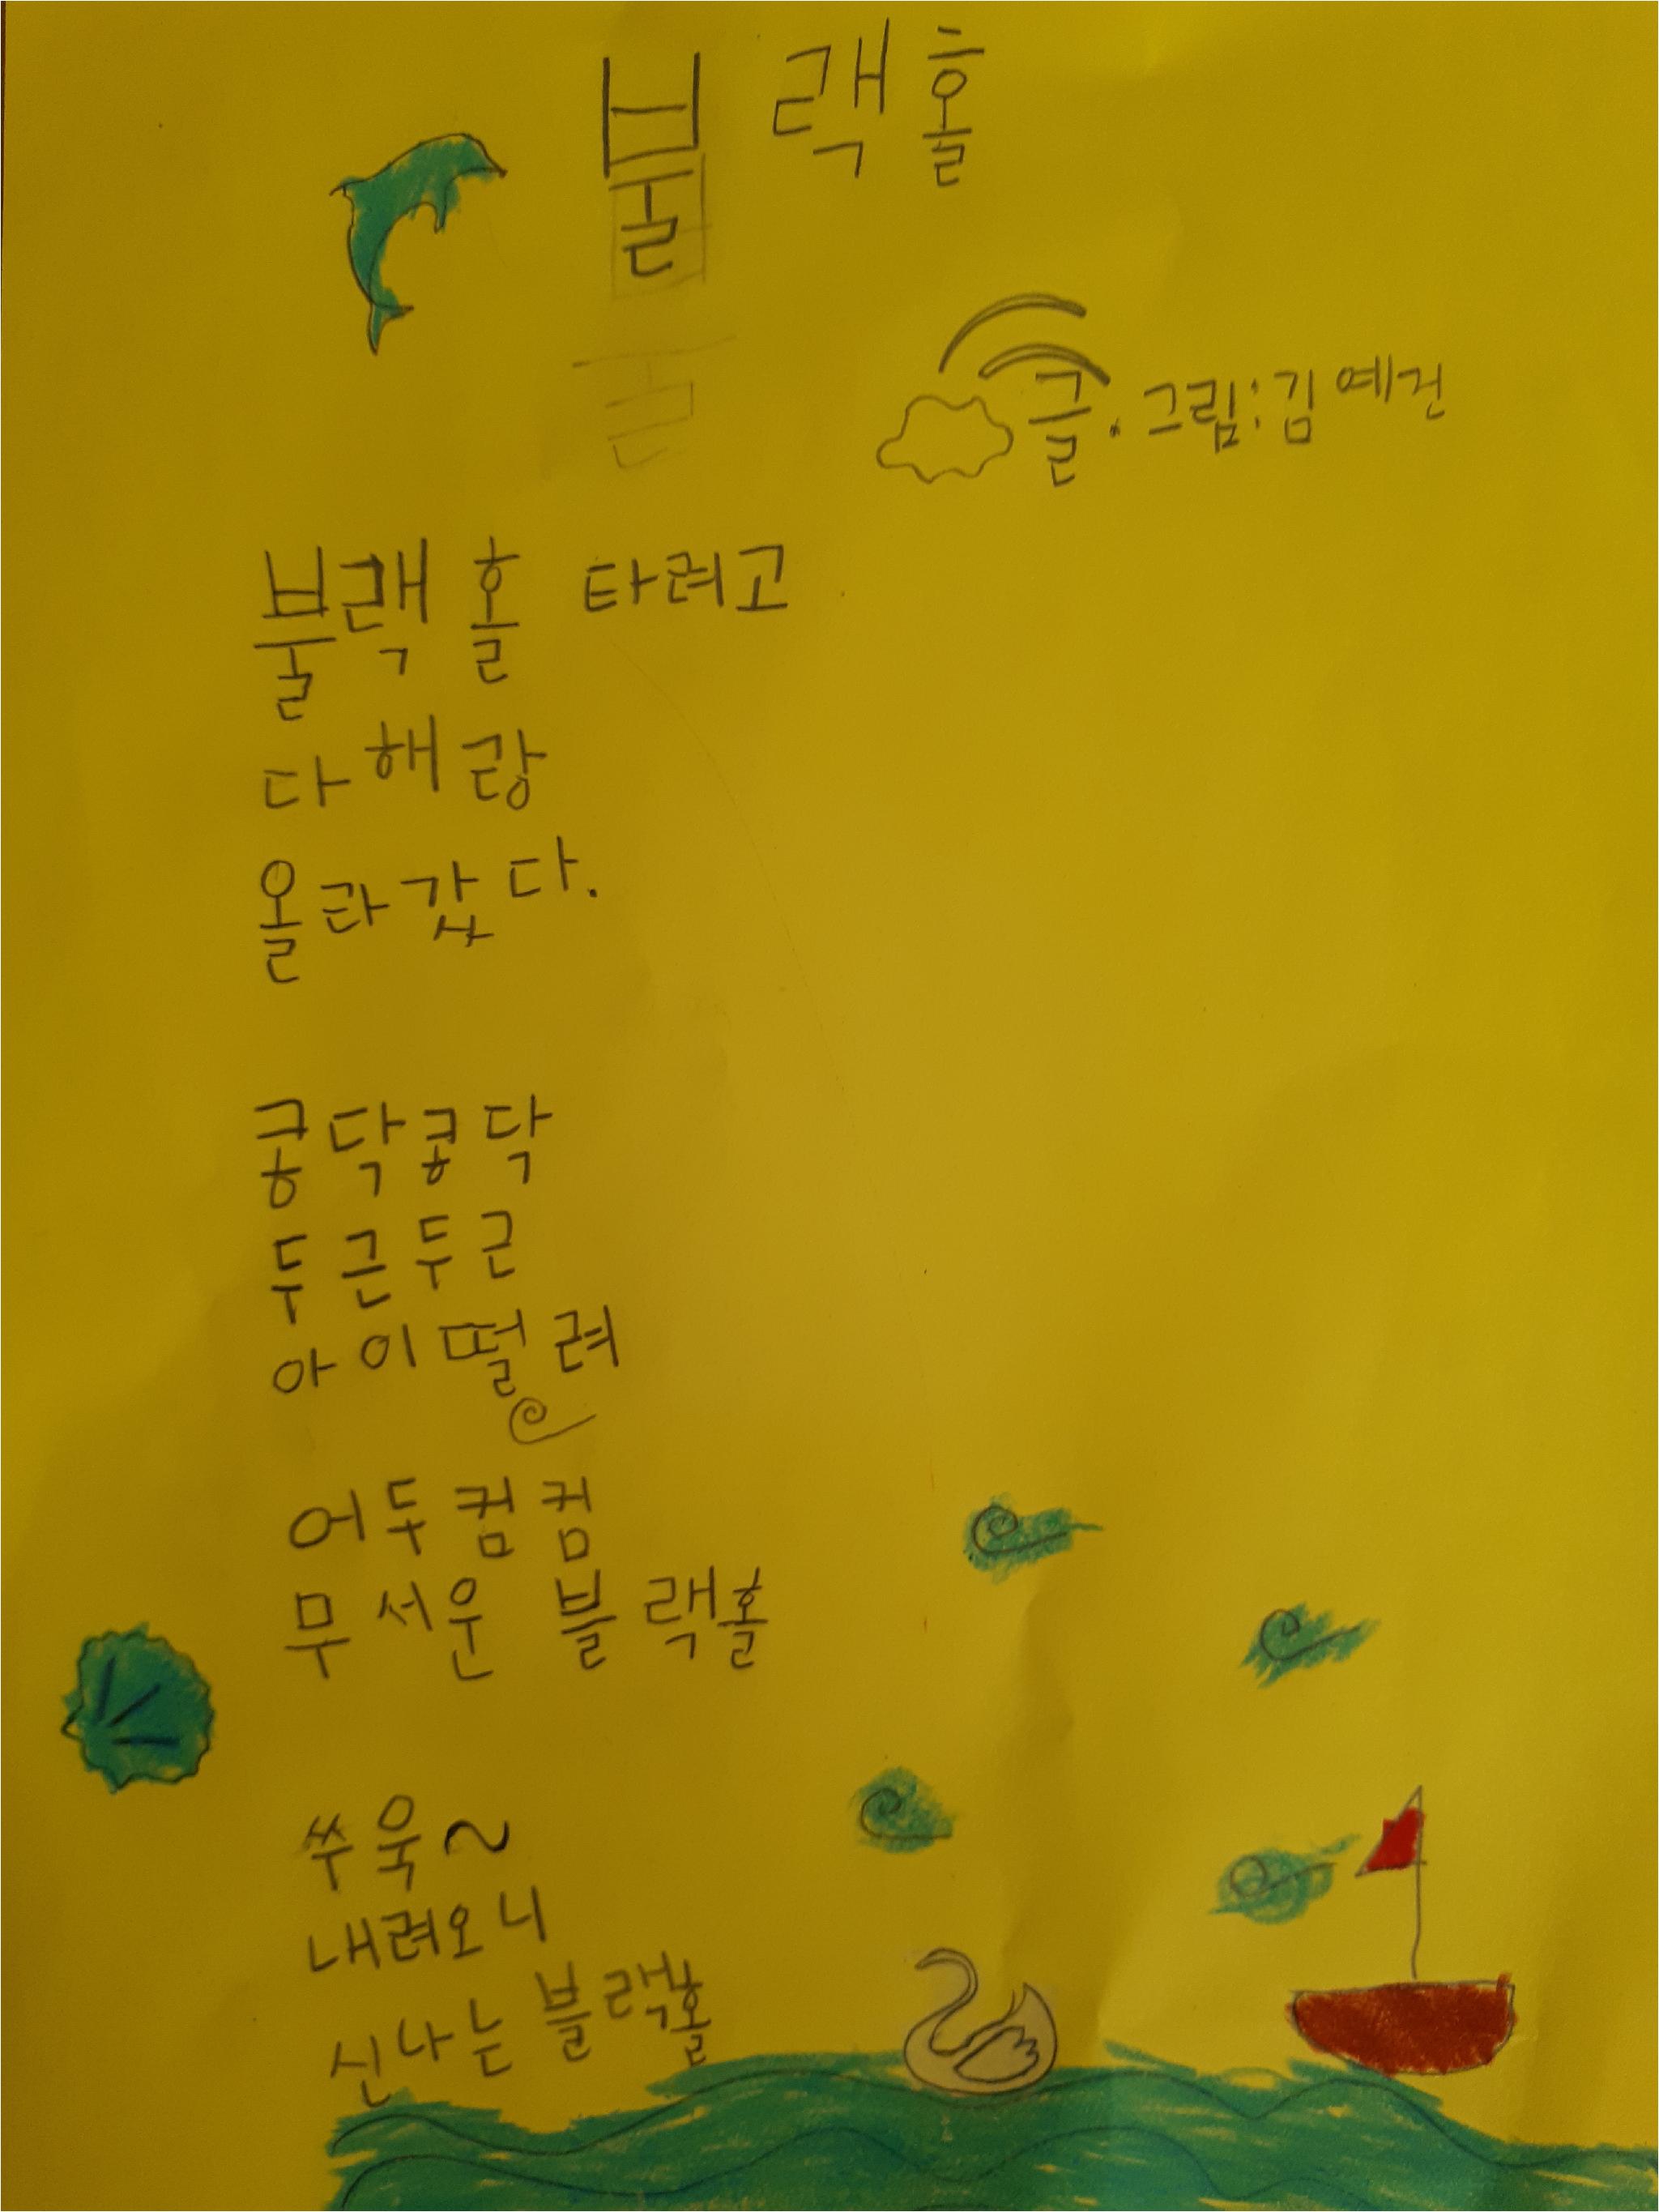 불랙홀
글.그림:김예건
불랙홀 타려고
다해랑
올라갔다.
콩닥콩닥
두근두근
아이떨려
어두컴컴
무서운 블랙홀
쑤욱~
내려오니
신나는 블랙홀